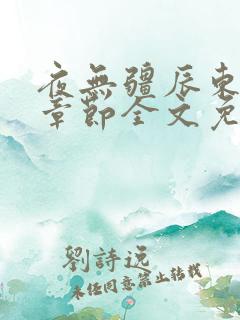 夜無疆辰東
章節全文免
劉詩远
未经同意禁止转载